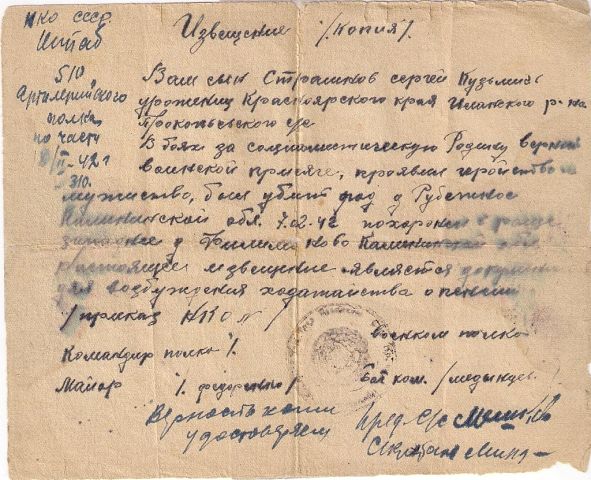 НКО СССР
Штаб
510
Артиллерийского
полка
по части
II-42 г
310.
Извещение /копия/.
Ваш сын Страшков Сергей Кузьмич
уроженец Красноярского края Иланского р-на
Прокопьевского с/с
В боях за социалистическую Родину верный
воинской присяге, проявив геройство и
мужество, был убит под д Рубежное
Калининской обл. 7.02.42 похоронен в роще
западнее д Филимоново Калининской обл
Настоящее извещение является документом
для возбуждения ходатайства о пенсии
/приказ НКО №/
Командир полка /.
военком полка
Майор /. Федоренко/
бат ком. /медынцев/
Верность копии
удостоверяем
Пред. с/с
Секретарь